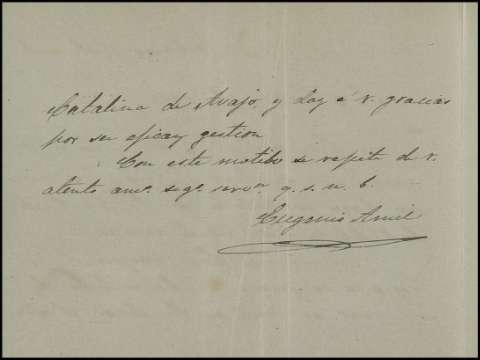 Catalina de Avajo, y doy á v. gracias
por su eficaz gestion
Con este motibo se repite de v.
atento amo. s. go. servor. q. s. m. b.
Eugenio Amil